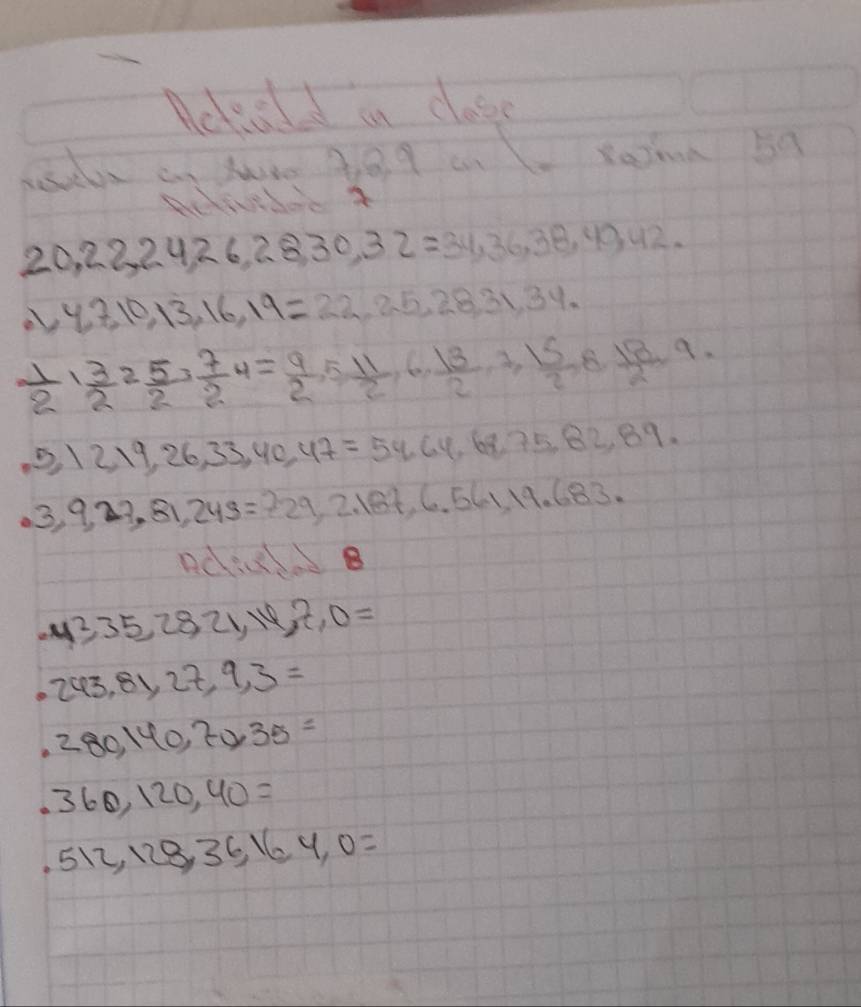 Actividad en clase
en 7,8,9 en la página 59
Actividad 7
.20,22,24,26,28,30,32=34,36,38,40,42.
.1,4,7,10,13,16,19=22,25,28,31,34.
.1/2,1 3/2 2 5/2,3 7/2 4=9/2,5 11/2,6,13/2,7,15/2,8 18/2,9.
.5,12,19,26,33,40,47=54,64,68,75,82,89.
.3,9,27,81,243=729,2.187,6.561,19.683.
Actividad 8
.42,35,28,21,14,7,0=
.243,81,27,9,3=
.280,140,70,35=
.360,120,40=
.512,128,36,16,4,0=